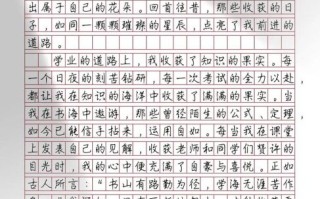 出属于自己的花朵。回首往昔，那些收获的日
子，如同一颗颗璀璨的星辰，点亮了我前进的
道路。
学业的道路上，我收获了知识的果实。每
一个日夜的刻苦钻研，每一次考试的全力以赴，
都让我在知识的海洋中收获了满满的果实。当
我在书海中遨游，那些曾经陌生的公式、定理，
如今已能信手拈来，运用自如。每当我在课堂
上发表自己的见解，收获老师和同学们赞许的
目光时，我的心中便充满了自豪与喜悦。正如
古人所言：“书山有路勤为径，学海无涯苦作